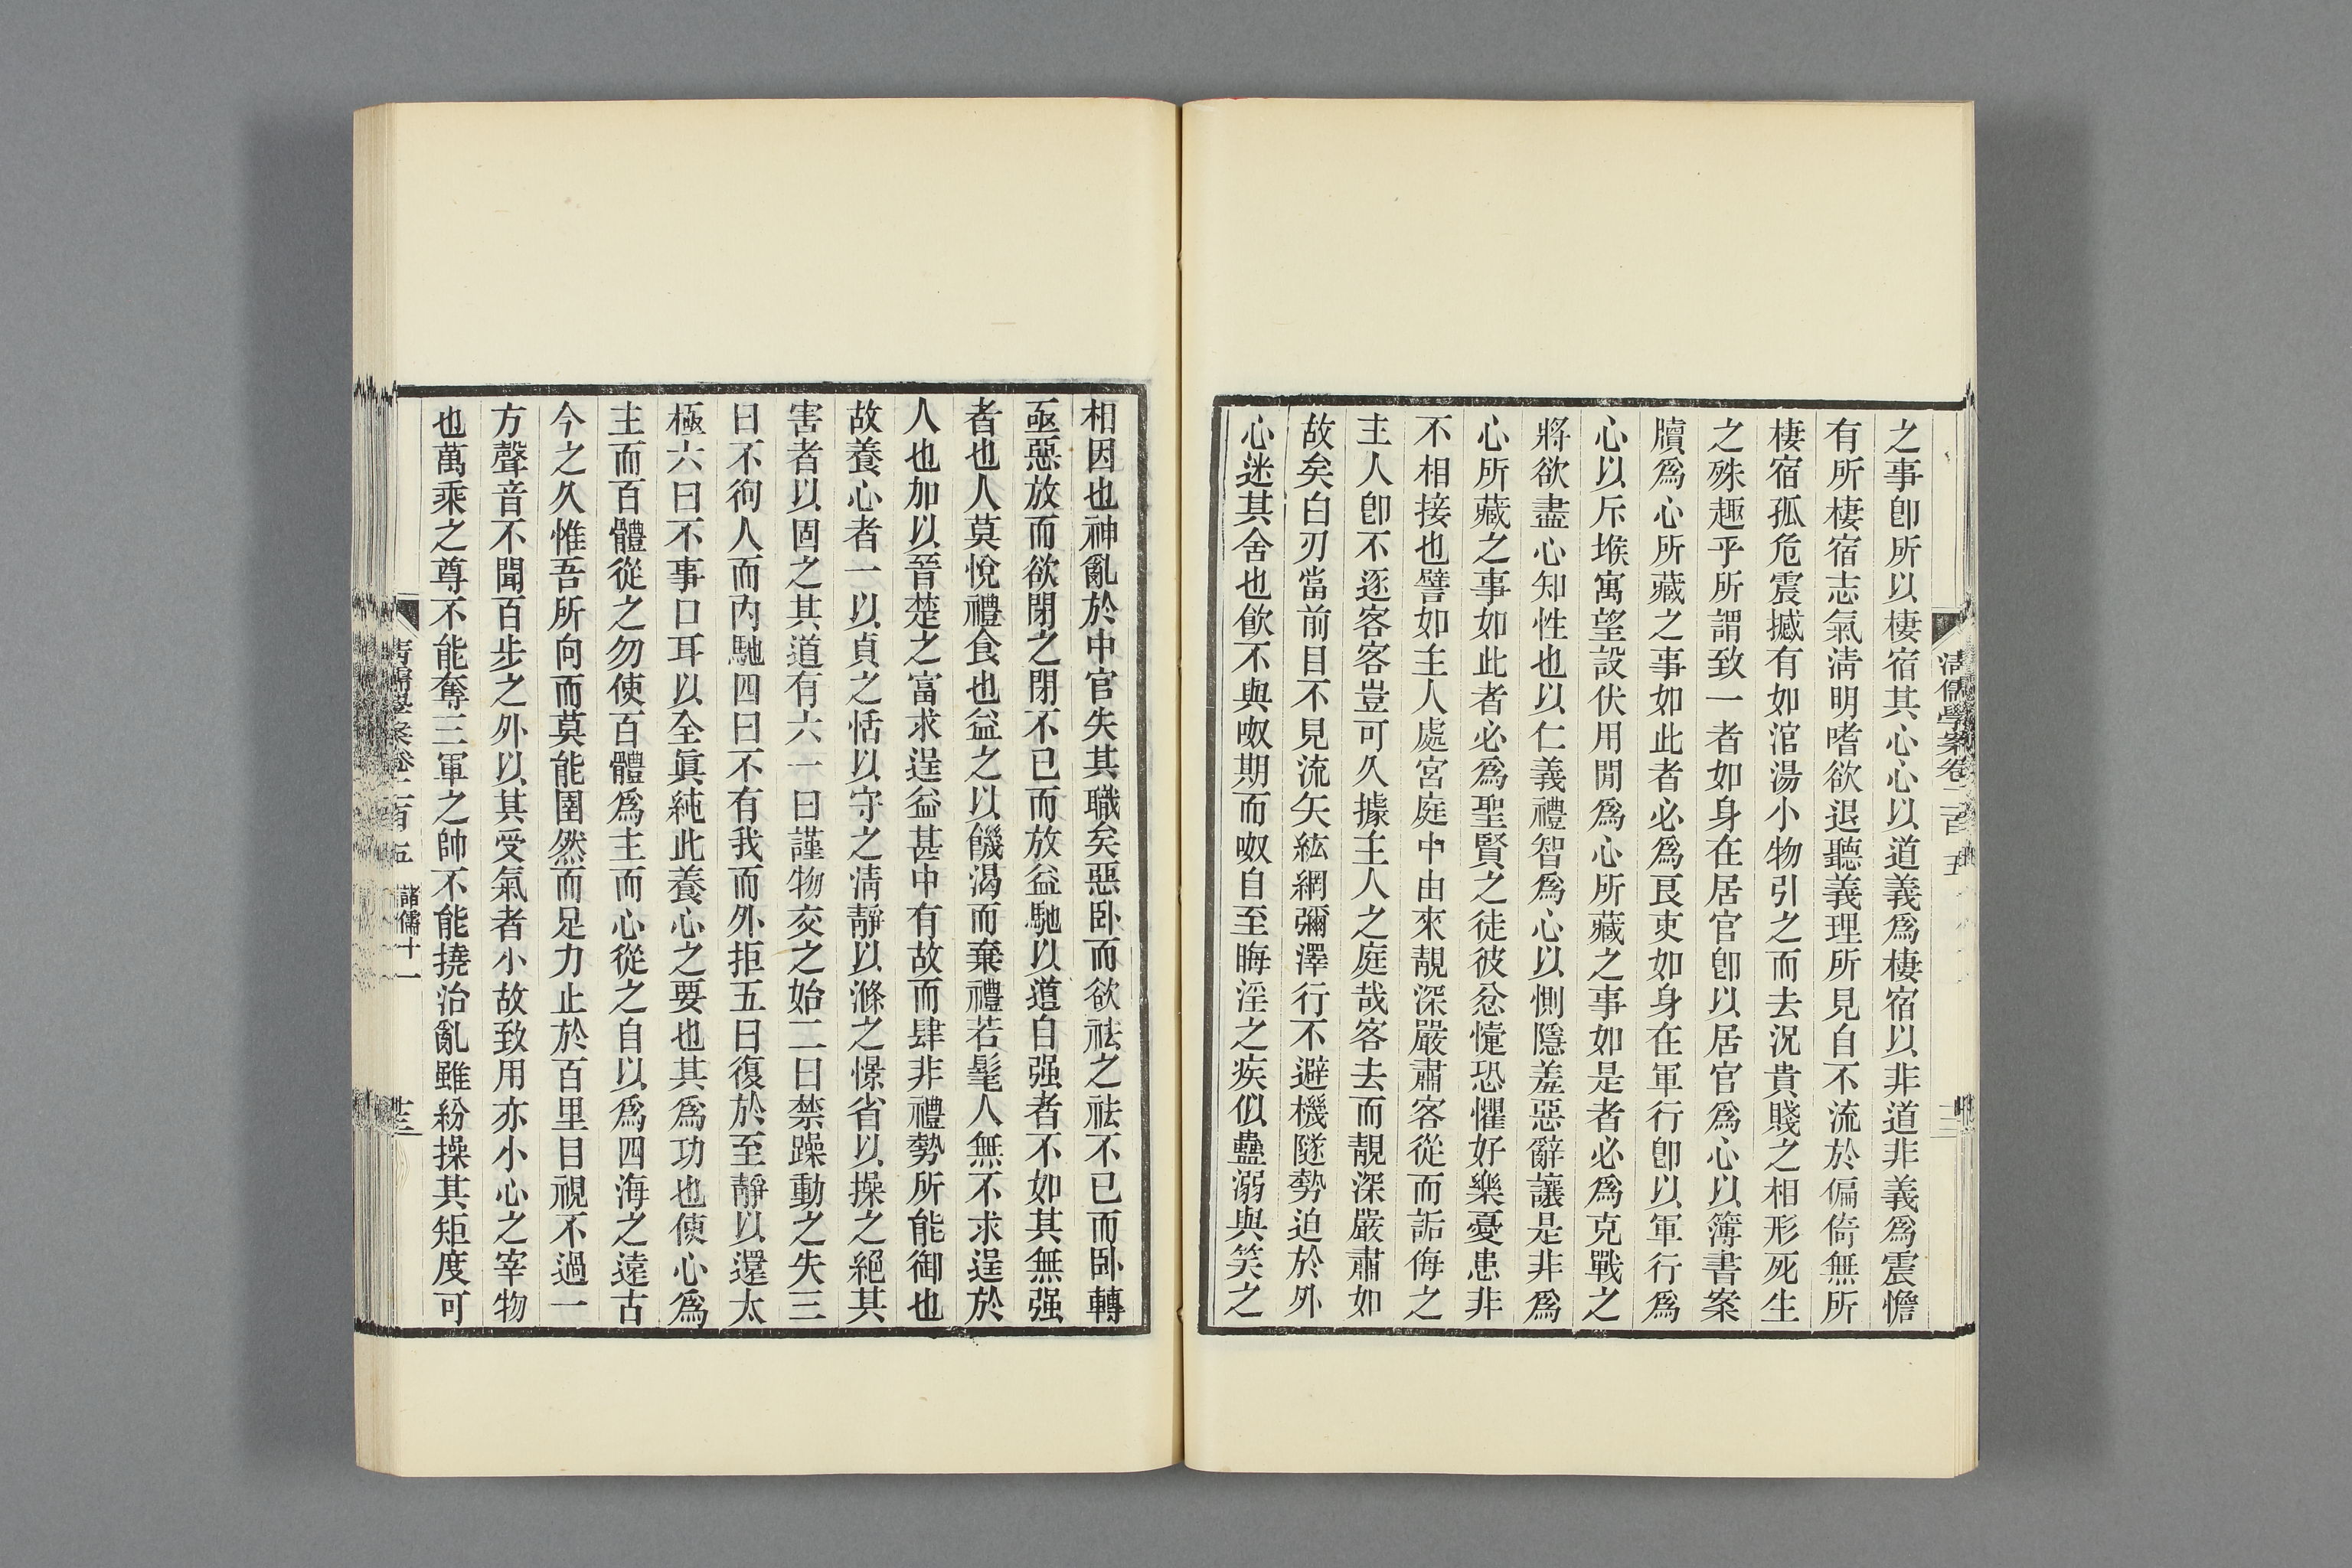 清儒學案卷二百五
之事卽所以棲宿其心心以道義爲棲宿以非道非義爲震憺
有所棲宿志氣淸明嗜欲退聽義理所見自不流於偏倚無所
棲宿孤危震撼有如涫湯小物引之而去況貴賤之相形死生
之殊趣乎所謂致一者如身在居官卽以居官爲心以簿書案
牘爲心所藏之事如此者必爲良吏如身在軍行卽以軍行爲
心以斥堠寓望設伏用閒爲心所藏之事如是者必爲克戰之
將欲盡心知性也以仁義禮智爲心以惻隱羞惡辭讓是非爲
心所藏之事如此者必爲聖賢之徒彼忿懥恐懼好樂憂患非
不相接也譬如主人處宮庭中由來靚深嚴肅客從而詬侮之
主人卽不逐客客豈可久據主人之庭哉客去而靚深嚴肅如
故矣白刃當前目不見流矢紘網彌澤行不避機隧勢迫於外
心迷其舍也飮不與呶期而呶自至晦淫之疾似蠱溺與笑之
相因也神亂於中官失其職矣惡卧而欲祛之祛不已而卧轉
亟惡放而欲閉之閉不已而放益馳以道自强者不如其無强
者也人莫悅禮食也益之以饑渴而棄禮若髦人無不求逞於
人也加以晉楚之富求逞益甚中有故而肆非禮勢所能御也
故養心者一以貞之恬以守之淸靜以滌之憬省以操之絕其
害者以固之其道有六一曰謹物交之始二曰禁躁動之失三
曰不徇人而內馳四曰不有我而外拒五曰復於至靜以還太
極六曰不事口耳以全眞純此養心之要也其爲功也使心爲
主而百體從之勿使百體爲主而心從之自以爲四海之遠古
今之久惟吾所向而莫能圉然而足力止於百里目視不過一
方聲音不聞百步之外以其受氣者小故致用亦小心之宰物
也萬乘之尊不能奪三軍之帥不能撓治亂雖紛操其矩度可
清儒學案卷二百五 諸儒十一 廿三